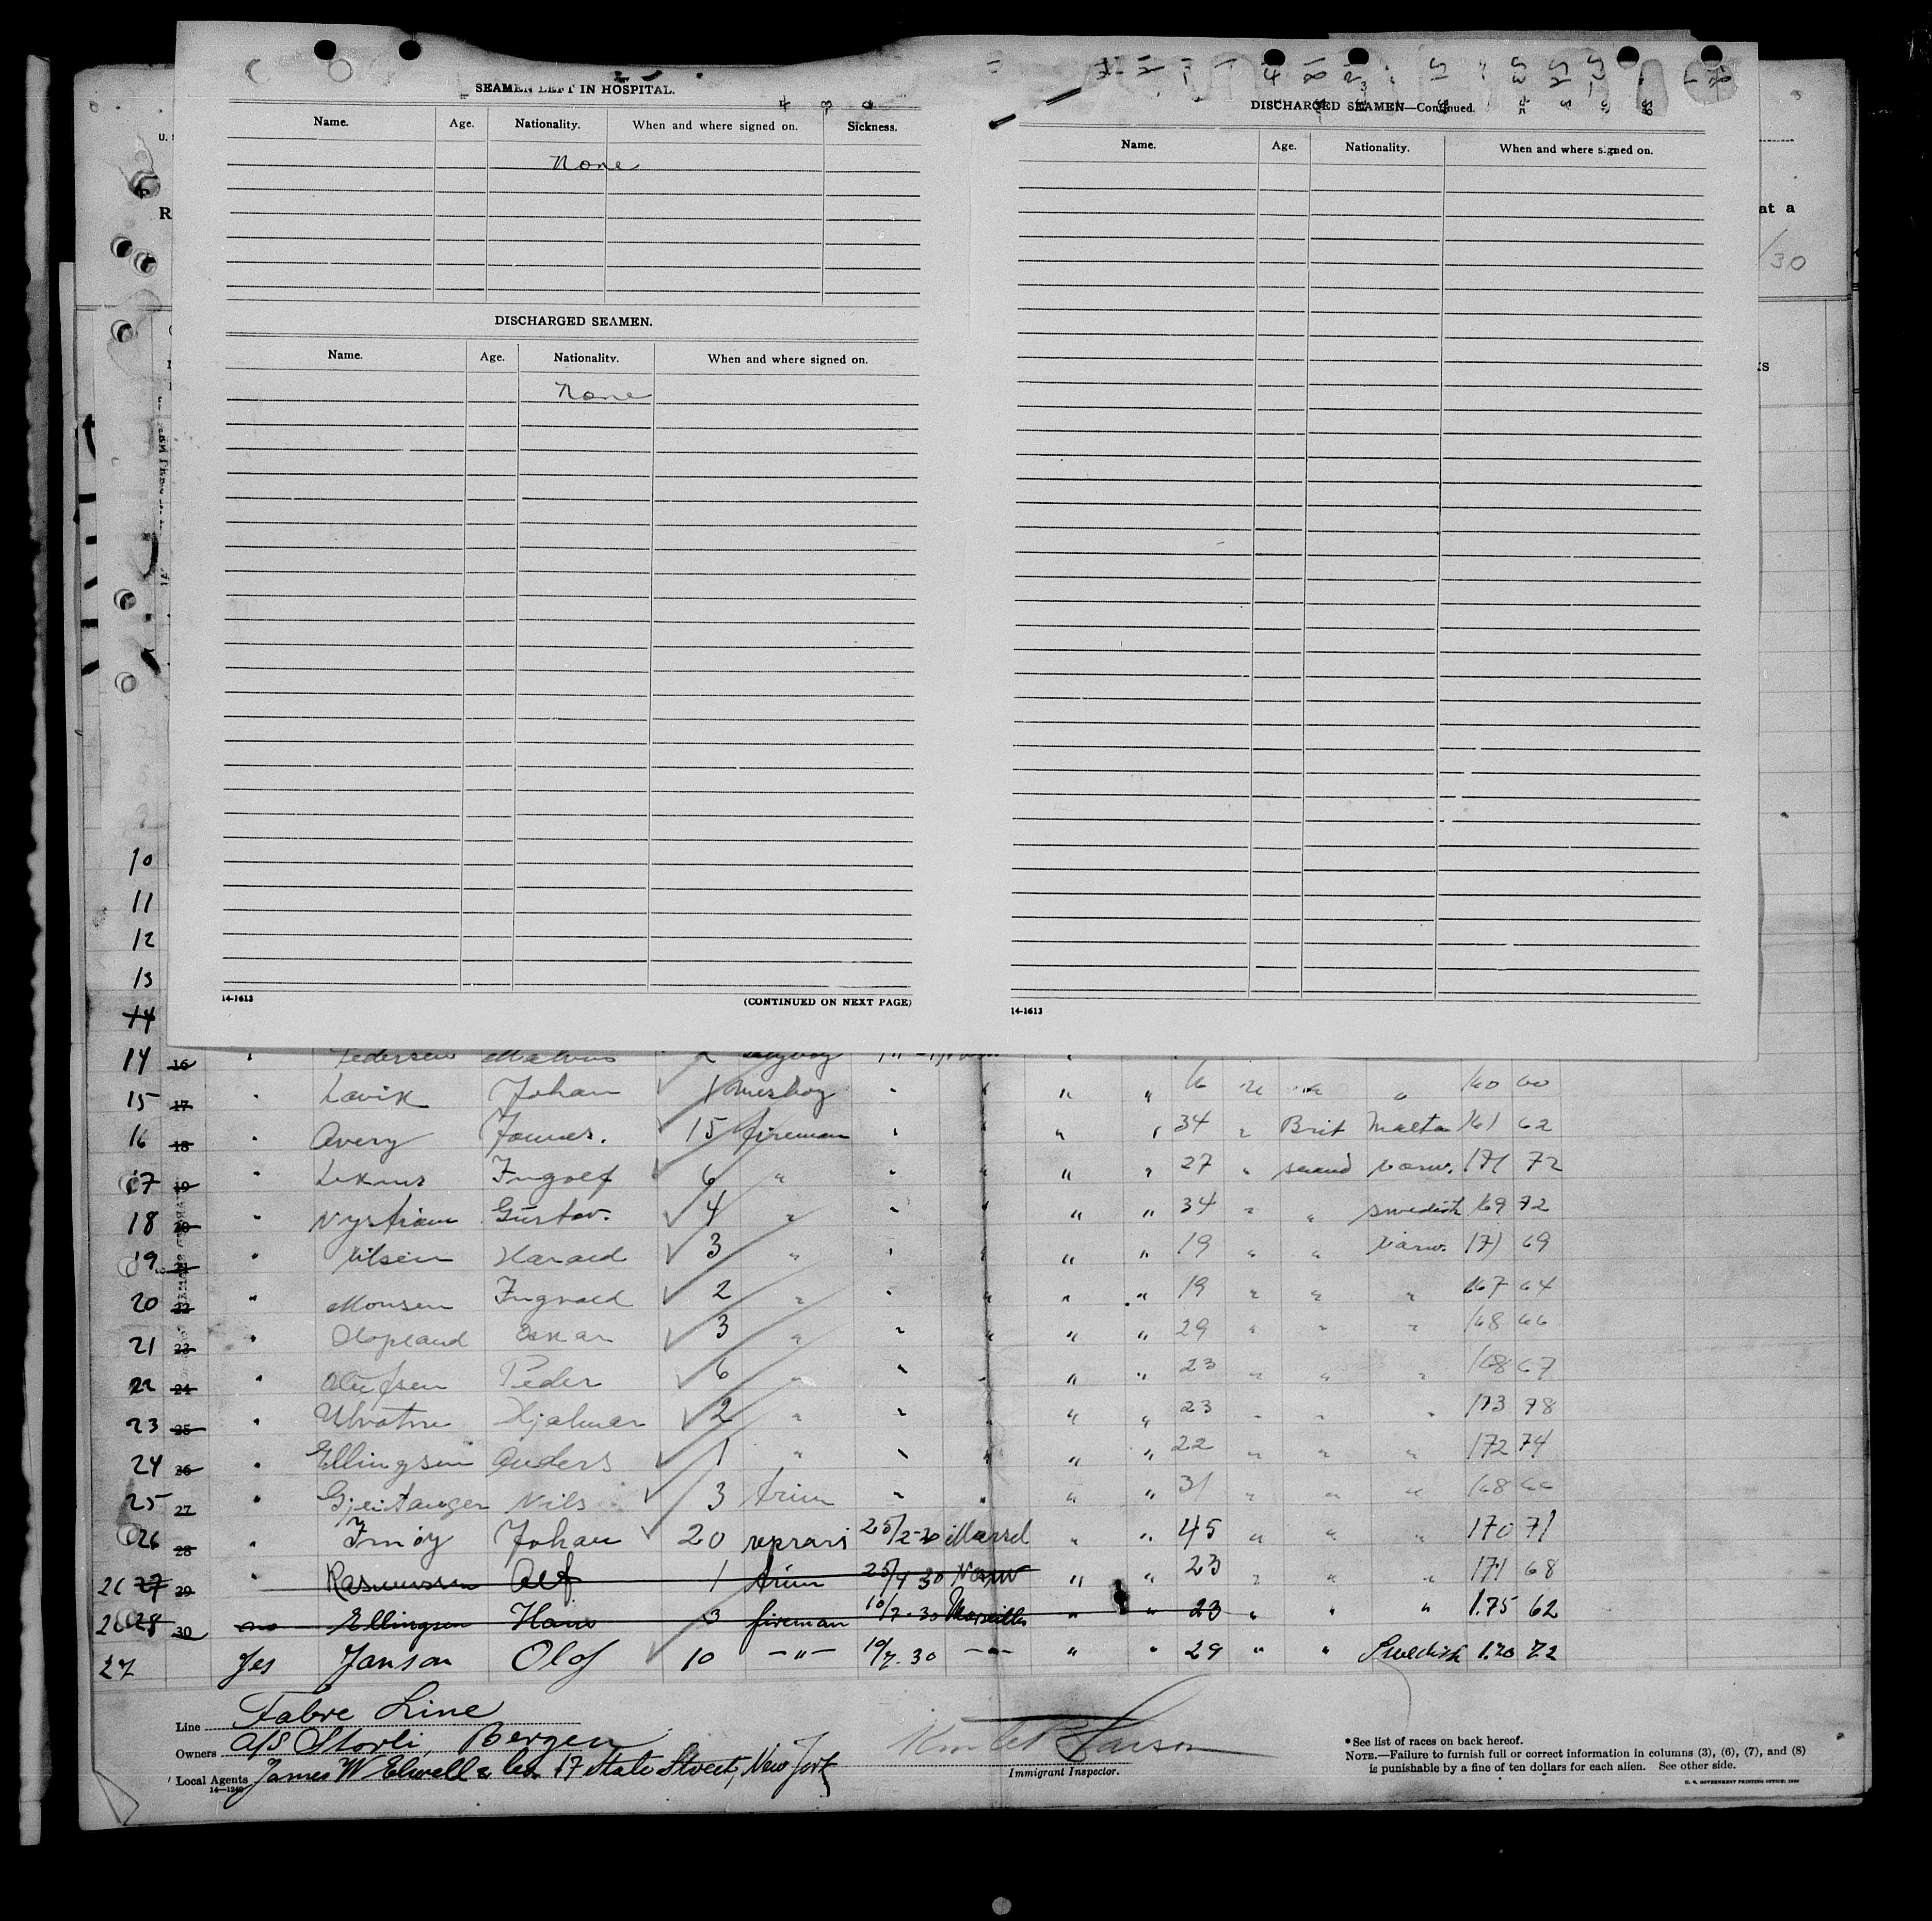 SEAMEN LEFT IN HOSPITAL.
Name. Age. Nationality. When and where signed on. Sickness.
None
DISCHARGED SEAMEN.
Name. Age. Nationality. When and where signed on.
None
14-1613 (CONTINUED ON NEXT PAGE)
DISCHARGED SEAMEN—Continued.
Name. Age. Nationality. When and where signed on.
14-1613
U. S
R
at a
/30
ts
10
11
12
13
14
14 16 " Pedersen
15 17 " Lavik Johan 1 messboy " " " " " " " 160 60
16 18 " Avery James. 15 fireman " " " " 34 " Brit Malta 161 62
17 19 " Ingolf 6 " " " " " 27 " scand Norw. 171 72
18 20 " Nystrom Gustav. 4 " " " " " 34 " " Swedish 169 72
19 21 " Nilsen Harald 3 " " " " " 19 " " Norw. 171 69
20 22 " Monsen Ingvald 2 " " " " " 19 " " " 167 64
21 23 " Hopland Oskar 3 " " " " " 29 " " " 168 66
22 24 " Olufsen Peder 6 " " " " " 23 " " " 168 67
23 25 " Ulvatne Hjalmar 2 " " " " " 23 " " " 173 78
24 26 " Ellingsen Anders 1 " " " " " 22 " " " 172 74
25 27 " Gjeitanger Nils 3 trim " " " " 31 " " " 168 66
26 28 " Johan 20 25/2-30 Marsel " " 45 " " " 170 71
26 27 29 " Rasmussen Alf 1 trim 25/4 30 Norw " " 23 " " " 171 68
26 28 30 no Ellingsen Hans 3 fireman 10/7-30 Marseilles " " 23 " " " 1.75 62
27 Yes Janson Olof 10 —"— 10/7.30 —"— " " 29 " " Swedish 1.70 72
Line Fabre Line
Owners A/S Storli, Bergen
Local Agents James W Elwell & Co. 17 State Street, New York
14—1240
Larson
Immigrant Inspector.
* See list of races on back hereof.
NOTE.—Failure to furnish full or correct information in columns (3), (6), (7), and (8)
is punishable by a fine of ten dollars for each alien. See other side.
U. S. GOVERNMENT PRINTING OFFICE: